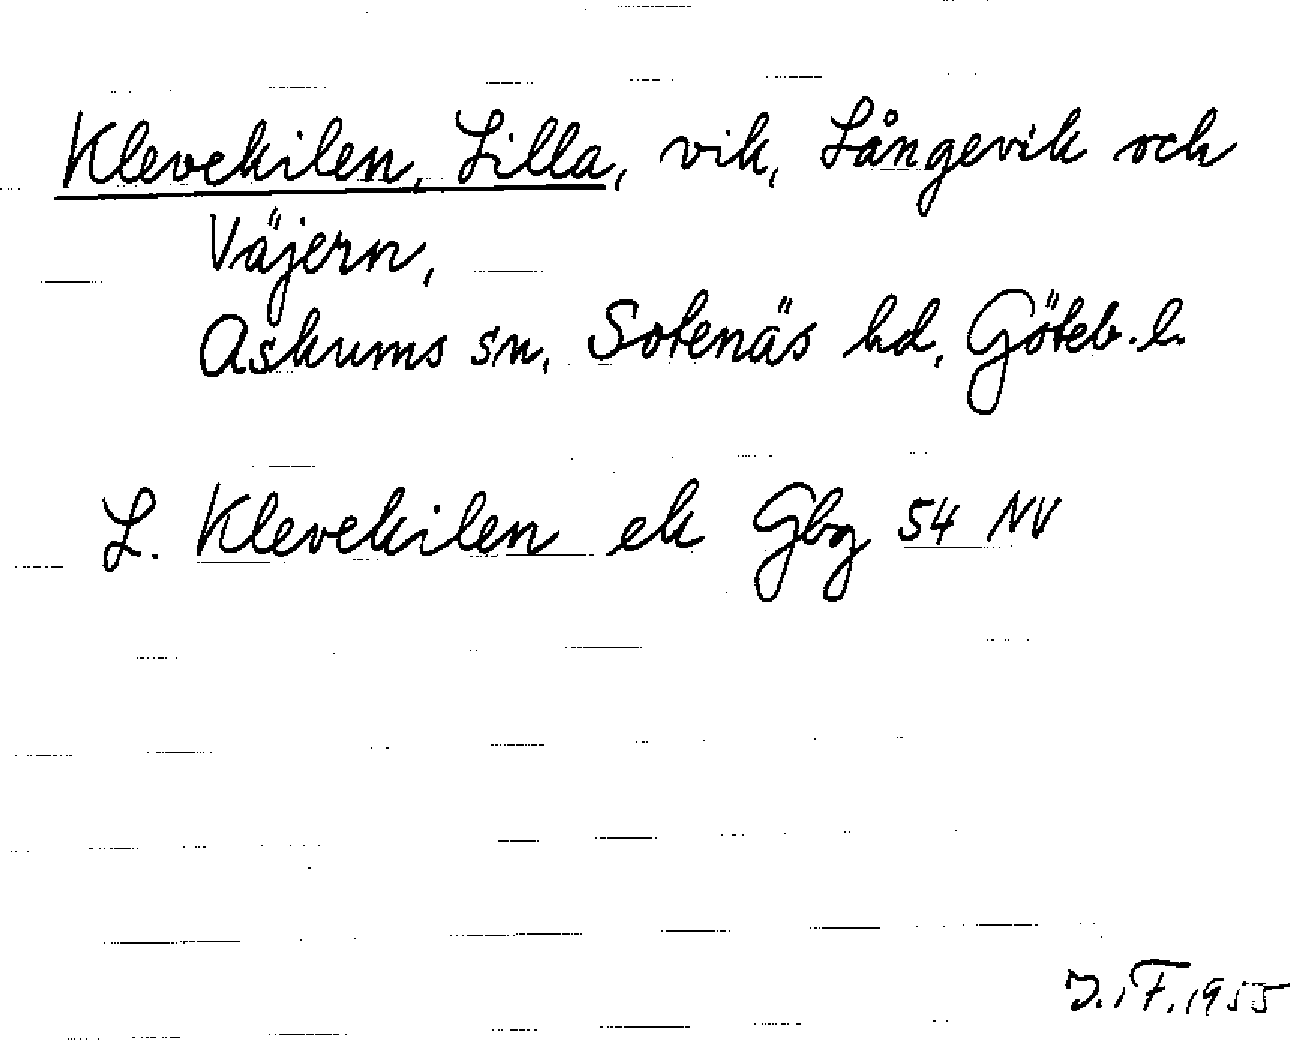 Klevekilen, Lilla, vik, Långevik och
Väjern,
Askums sn, Sotenäs hd, Göteb. l.
L. Klevekilen ek Gbg 54 NV
J. F. 1955